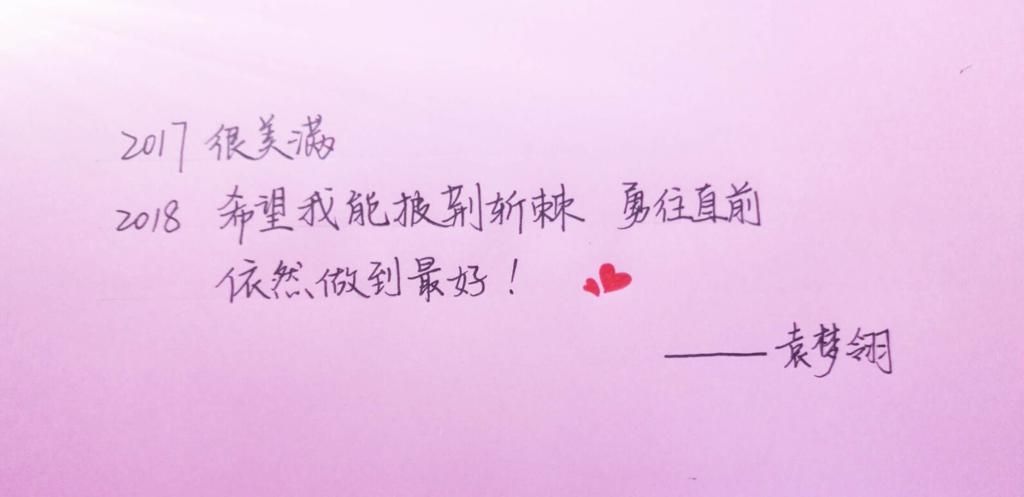 2017 很美满
2018 希望我能披荆斩棘 勇往直前
依然做到最好！
——袁梦翎